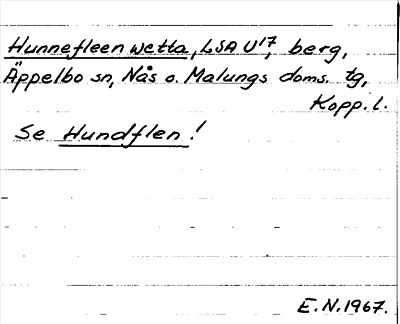 Hunnefleen wetta, LSA U17, berg,
Äppelbo sn, Nås o. Malungs doms. tg,
Kopp. l.
Se Hundflen!
E.N. 1967.